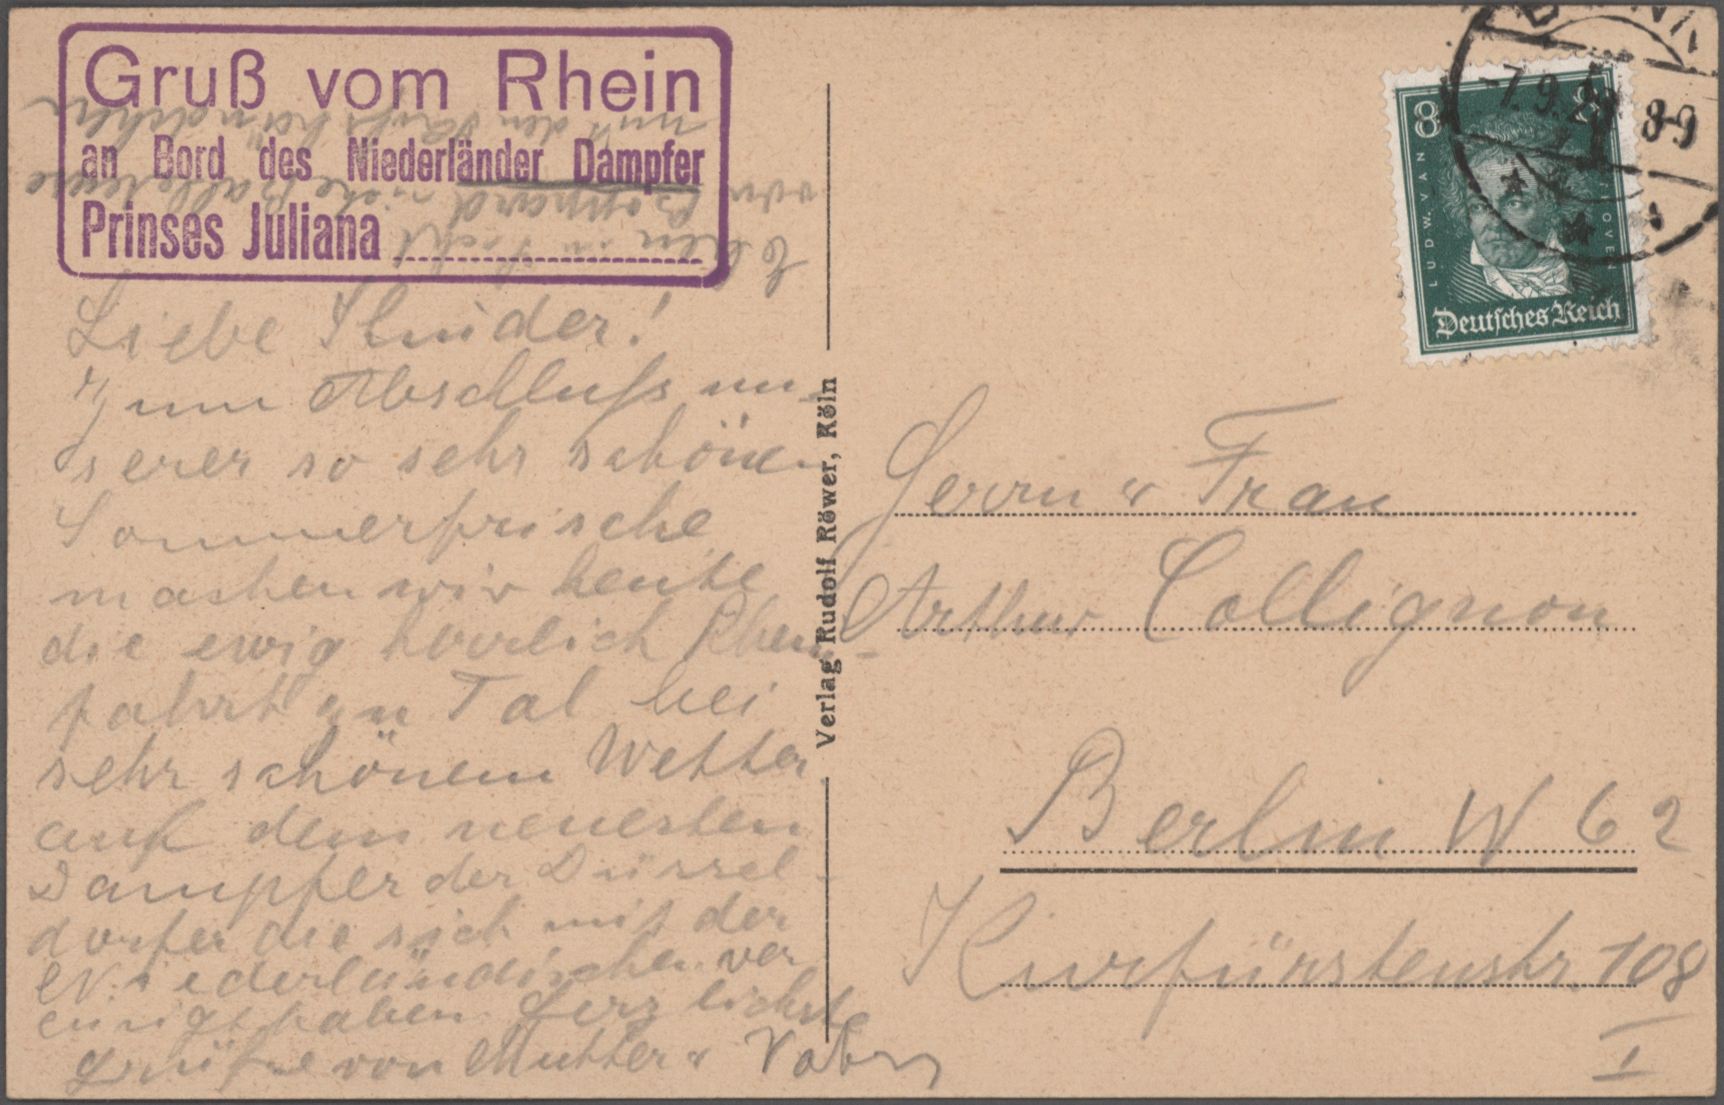 Gruß vom Rhein
an Bord des Niederländer Dampfer
Prinses Juliana
Liebe Kinder!
Zum Abschluß un-
serer so sehr schönen
Sommerfrische
machen wir heute
die ewig herrlich Rhein-
fahrt zu Tal bei
sehr schönem Wetter
auf dem neuesten
Dampfer der Düssel-
dorfer die sich mit der
Niederländischen ver
einigt haben. Herzlichste
Grüße von Mutter u Vater
von Boppard
Verlag Rudolf Röwer, Köln
8
8
LUDW. VAN
Deutsches Reich
-7.9.
8-9
Herrn u Frau
Arthur Collignon
Berlin W 62
Kurfürstenstr. 108
I